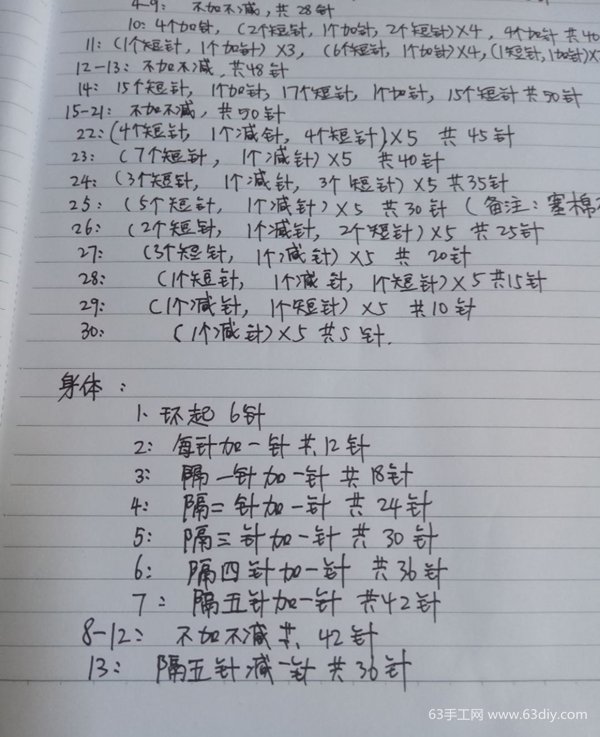 4-9: 不加不减,共28针
10: 4个加针, (2个短针, 1个加针, 2个短针)×4, 4个加针 共40
11: (1个短针, 1个加针)×3, (6个短针, 1个加针)×4, (1短针, 1加针)×
12-13: 不加不减, 共48针
14: 15个短针, 1个加针, 17个短针, 1个加针, 15个短针 共50针
15-21: 不加不减, 共50针
22: (4个短针, 1个减针, 4个短针)×5 共45针
23: (7个短针, 1个减针)×5 共40针
24: (3个短针, 1个减针, 3个短针)×5 共35针
25: (5个短针, 1个减针)×5 共30针 (备注: 塞棉
26: (2个短针, 1个减针, 2个短针)×5 共25针
27: (3个短针, 1个减针)×5 共20针
28: (1个短针, 1个减针, 1个短针)×5 共15针
29: (1个减针, 1个短针)×5 共10针
30: (1个减针)×5 共5针.
身体:
1. 环起 6针
2: 每针加一针 共12针
3: 隔一针加一针 共18针
4: 隔二针加一针 共24针
5: 隔三针加一针 共30针
6: 隔四针加一针 共36针
7: 隔五针加一针 共42针
8-12: 不加不减共, 42针
13: 隔五针减一针 共36针
63手工网 www.63diy.com